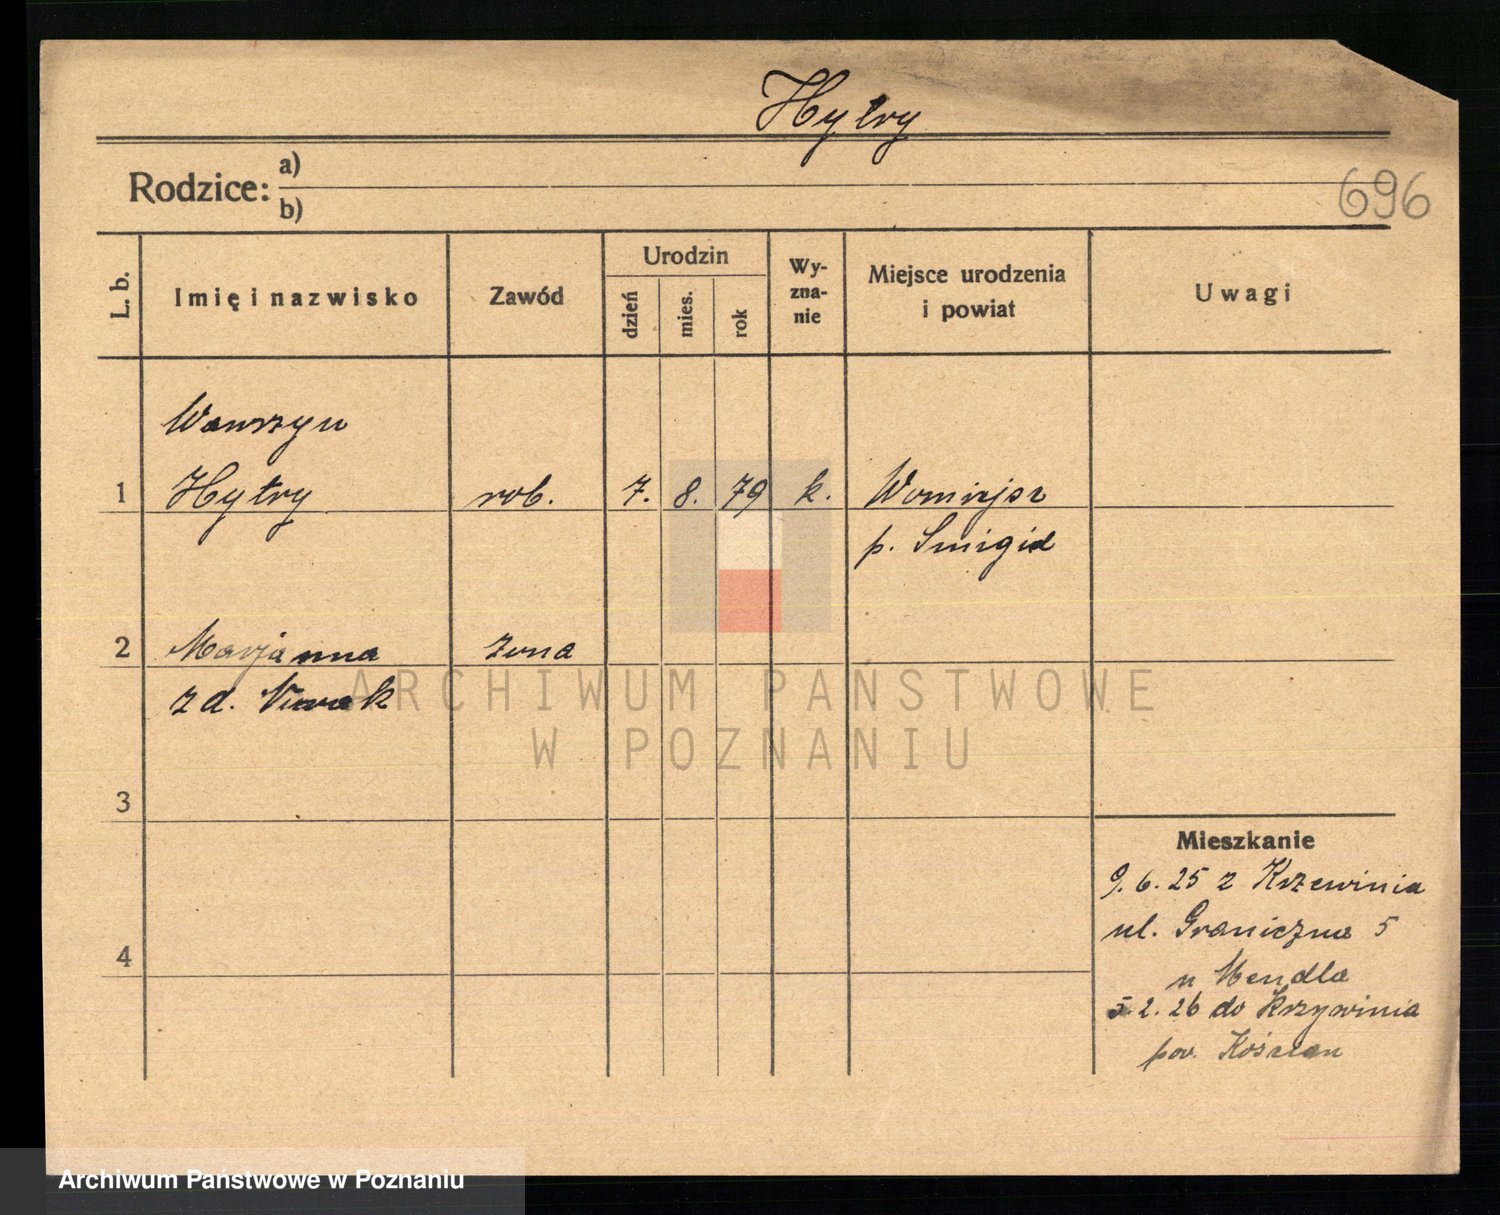 Hytry
Rodzice: a)
b)
696
L. b.
Imię i nazwisko
Zawód
Urodzin
dzień
mies.
rok
Wy-
zna-
nie
Miejsce urodzenia
i powiat
Uwagi
Wawrzyn
1 Hytry rob. 7. 8. 79 k.
p. Smigiel
2 Marjanna żona
z d. Nowak
ARCHIWUM PAŃSTWOWE
W POZNANIU
3
4
Mieszkanie
9. 6. 25 z Krzewinia
ul. Graniczna 5
u Mendla
5. 2. 26 do Krzywinia
pow. Kościan
Archiwum Państwowe w Poznaniu